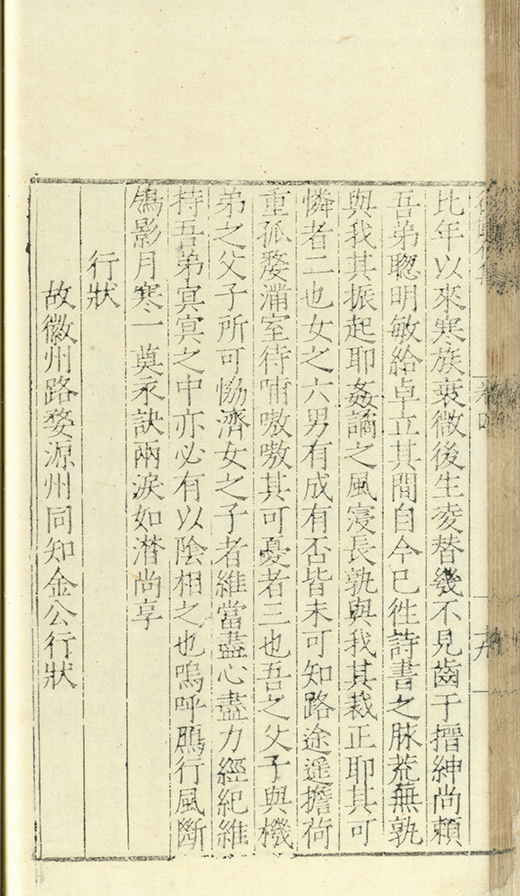 卷四
十九
比年以來寒族衰微後生夌替幾不見齒于搢紳尚頼
吾弟聦明敏給卓立其間自今已徃詩書之脉荒蕪孰
與我其振起耶姦譎之風寖長孰與我其裁正耶其可
憐者二也女之六男有成有否皆未可知路途遥擔荷
重孤嫠滿室待哺嗷嗷其可憂者三也吾之父子與機
弟之父子所可恊濟女之子者維當盡心盡力經紀維
持吾弟㝠㝠之中亦必有以陰相之也嗚呼鴈行風斷
鴒影月寒一奠永訣兩淚如潸尚享
行狀
故徽州路婺源州同知金公行狀